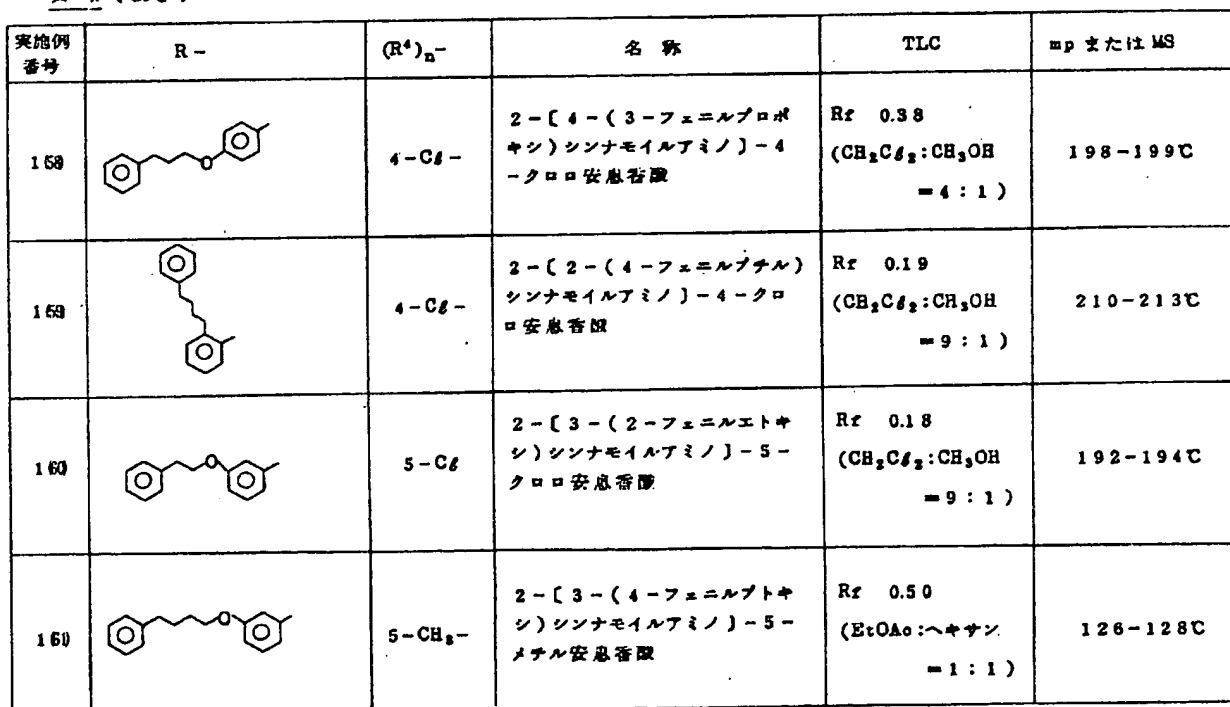 実施例
番号
R－
(R⁴)ₙ－
名 称
TLC
mp または MS
158
4－Cl－
2－〔4－(3－フェニルプロポ
キシ)シンナモイルアミノ〕－4
－クロロ安息香酸
Rf 0.38
(CH₂Cl₂:CH₃OH
＝4：1)
198－199℃
159
4－Cl－
2－〔2－(4－フェニルブチル)
シンナモイルアミノ〕－4－クロ
ロ安息香酸
Rf 0.19
(CH₂Cl₂:CH₃OH
＝9：1)
210－213℃
160
O
5－Cl
2－〔3－(2－フェニルエトキ
シ)シンナモイルアミノ〕－5－
クロロ安息香酸
Rf 0.18
(CH₂Cl₂:CH₃OH
＝9：1)
192－194℃
161
O
5－CH₃－
2－〔3－(4－フェニルブトキ
シ)シンナモイルアミノ〕－5－
メチル安息香酸
Rf 0.50
(EtOAc:ヘキサン
＝1：1)
126－128℃